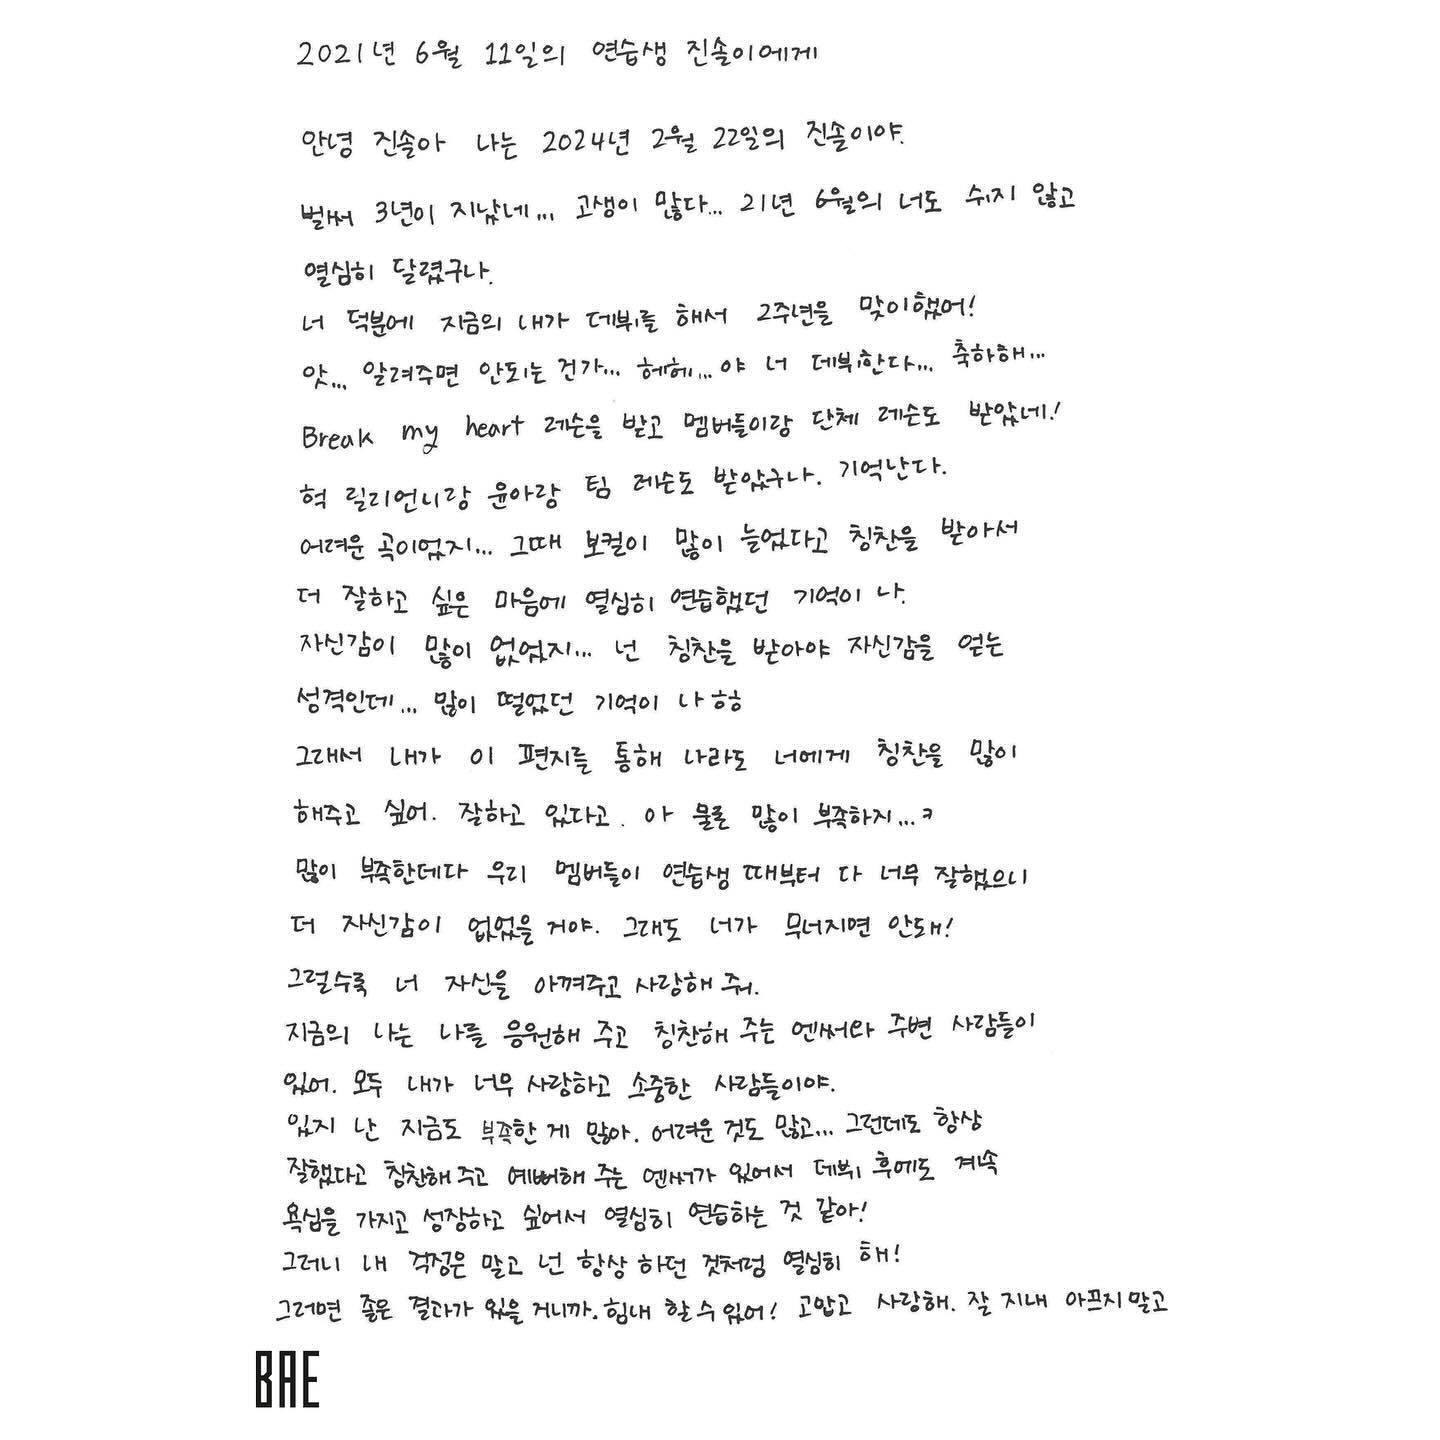 2021년 6월 11일의 연습생 진솔이에게
안녕 진솔아 나는 2024년 2월 22일의 진솔이야.
벌써 3년이 지났네... 고생이 많다... 21년 6월의 너도 쉬지 않고
열심히 달렸구나.
너 덕분에 지금의 내가 데뷔를 해서 2주년을 맞이했어!
앗... 알려주면 안되는 건가... 헤헤... 야 너 데뷔한다... 축하해...
Break my heart 레슨을 받고 멤버들이랑 단체 레슨도 받았네!
헉 릴리언니랑 윤아랑 팀 레슨도 받았구나. 기억난다.
어려운 곡이었지... 그때 보컬이 많이 늘었다고 칭찬을 받아서
더 잘하고 싶은 마음에 열심히 연습했던 기억이 나.
자신감이 많이 없었지... 넌 칭찬을 받아야 자신감을 얻는
성격인데... 많이 떨었던 기억이 나 하하
그래서 내가 이 편지를 통해 나라도 너에게 칭찬을 많이
해주고 싶어. 잘하고 있다고. 아 물론 많이 부족하지...ㅋ
많이 부족한데다 우리 멤버들이 연습생 때부터 다 너무 잘했으니
더 자신감이 없었을 거야. 그래도 너가 무너지면 안돼!
그럴수록 너 자신을 아껴주고 사랑해 줘.
지금의 나는 나를 응원해 주고 칭찬해 주는 엔써와 주변 사람들이
있어. 모두 내가 너무 사랑하고 소중한 사람들이야.
있지 난 지금도 부족한 게 많아. 어려운 것도 많고... 그런데도 항상
잘했다고 칭찬해 주고 예뻐해 주는 엔써가 있어서 데뷔 후에도 계속
욕심을 가지고 성장하고 싶어서 열심히 연습하는 것 같아!
그러니 내 걱정은 말고 넌 항상 하던 것처럼 열심히 해!
그러면 좋은 결과가 있을 거니까. 힘내 할 수 있어! 고맙고 사랑해. 잘 지내 아프지 말고
BAE